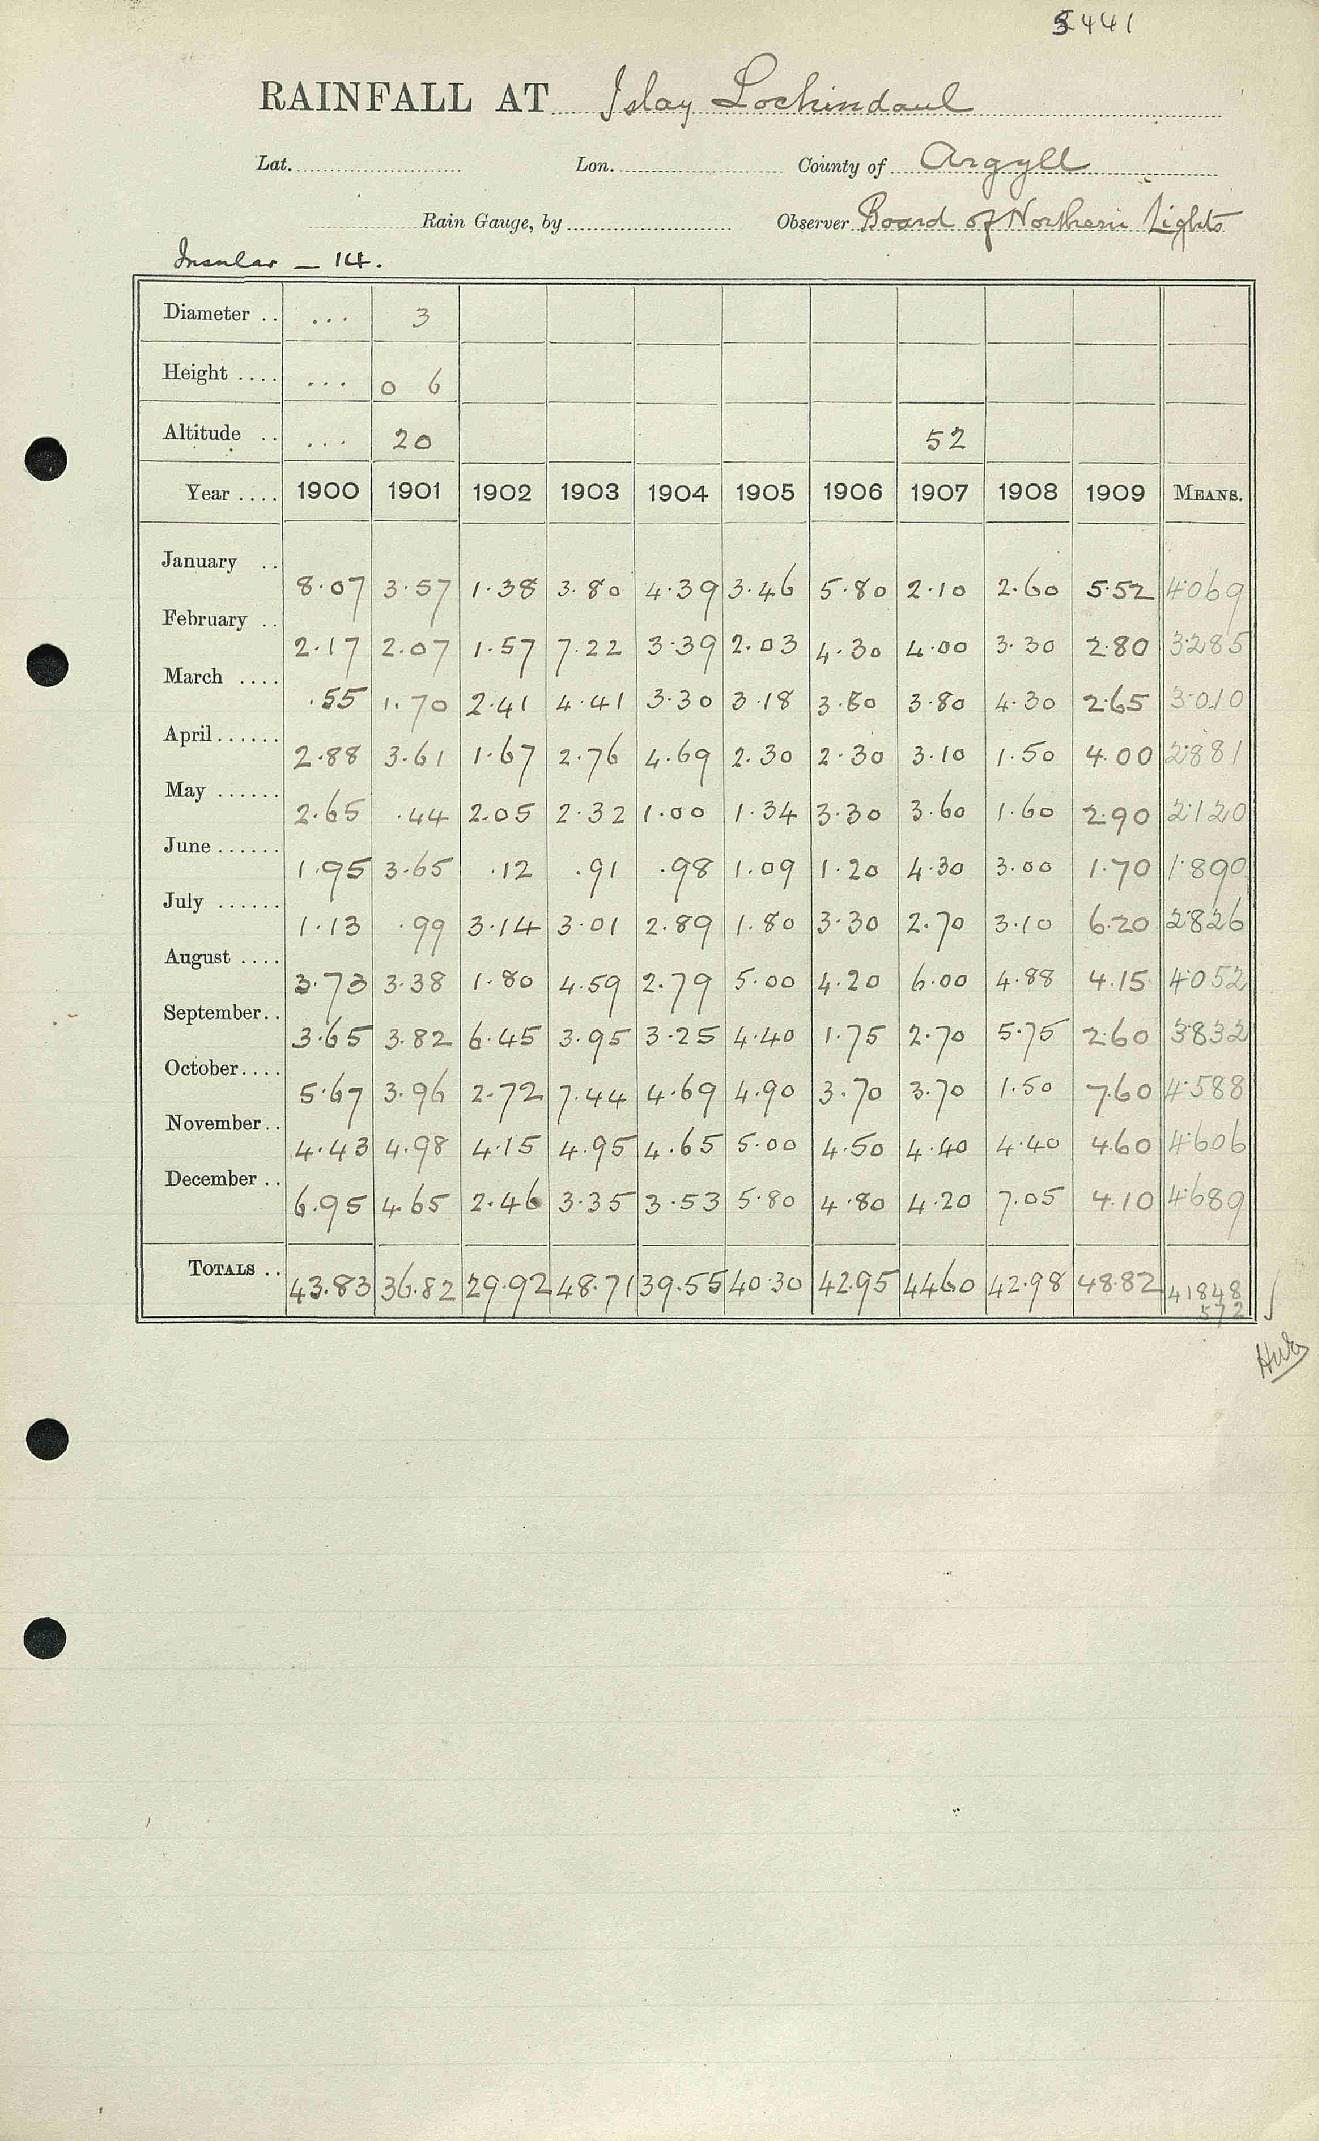 5441
RAINFALL AT Islay Lochindaul
Lat. Lon. County of Argyll
Rain Gauge, by Observer Board of Northern Lights
Insular — 14.
Diameter .. ... 3
Height .... ... 0 6
Altitude .. ... 20 52
Year .... 1900 1901 1902 1903 1904 1905 1906 1907 1908 1909 MEANS.
January .. 8.07 3.57 1.38 3.80 4.39 3.46 5.80 2.10 2.60 5.52 4.069
February .. 2.17 2.07 1.57 7.22 3.39 2.03 4.30 4.00 3.30 2.80 3.285
March .... .55 1.70 2.41 4.41 3.30 3.18 3.80 3.80 4.30 2.65 3.010
April ...... 2.88 3.61 1.67 2.76 4.69 2.30 2.30 3.10 1.50 4.00 2.881
May ...... 2.65 .44 2.05 2.32 1.00 1.34 3.30 3.60 1.60 2.90 2.120
June ...... 1.95 3.65 .12 .91 .98 1.09 1.20 4.30 3.00 1.70 1.890
July ...... 1.13 .99 3.14 3.01 2.89 1.80 3.30 2.70 3.10 6.20 2.826
August .... 3.73 3.38 1.80 4.59 2.79 5.00 4.20 6.00 4.88 4.15 4.052
September .. 3.65 3.82 6.45 3.95 3.25 4.40 1.75 2.70 5.75 2.60 3.832
October .... 5.67 3.96 2.72 7.44 4.69 4.90 3.70 3.70 1.50 7.60 4.588
November .. 4.43 4.98 4.15 4.95 4.65 5.00 4.50 4.40 4.40 4.60 4.606
December .. 6.95 4.65 2.46 3.35 3.53 5.80 4.80 4.20 7.05 4.10 4.689
TOTALS .. 43.83 36.82 29.92 48.71 39.55 40.30 42.95 44.60 42.98 48.82 41848
572